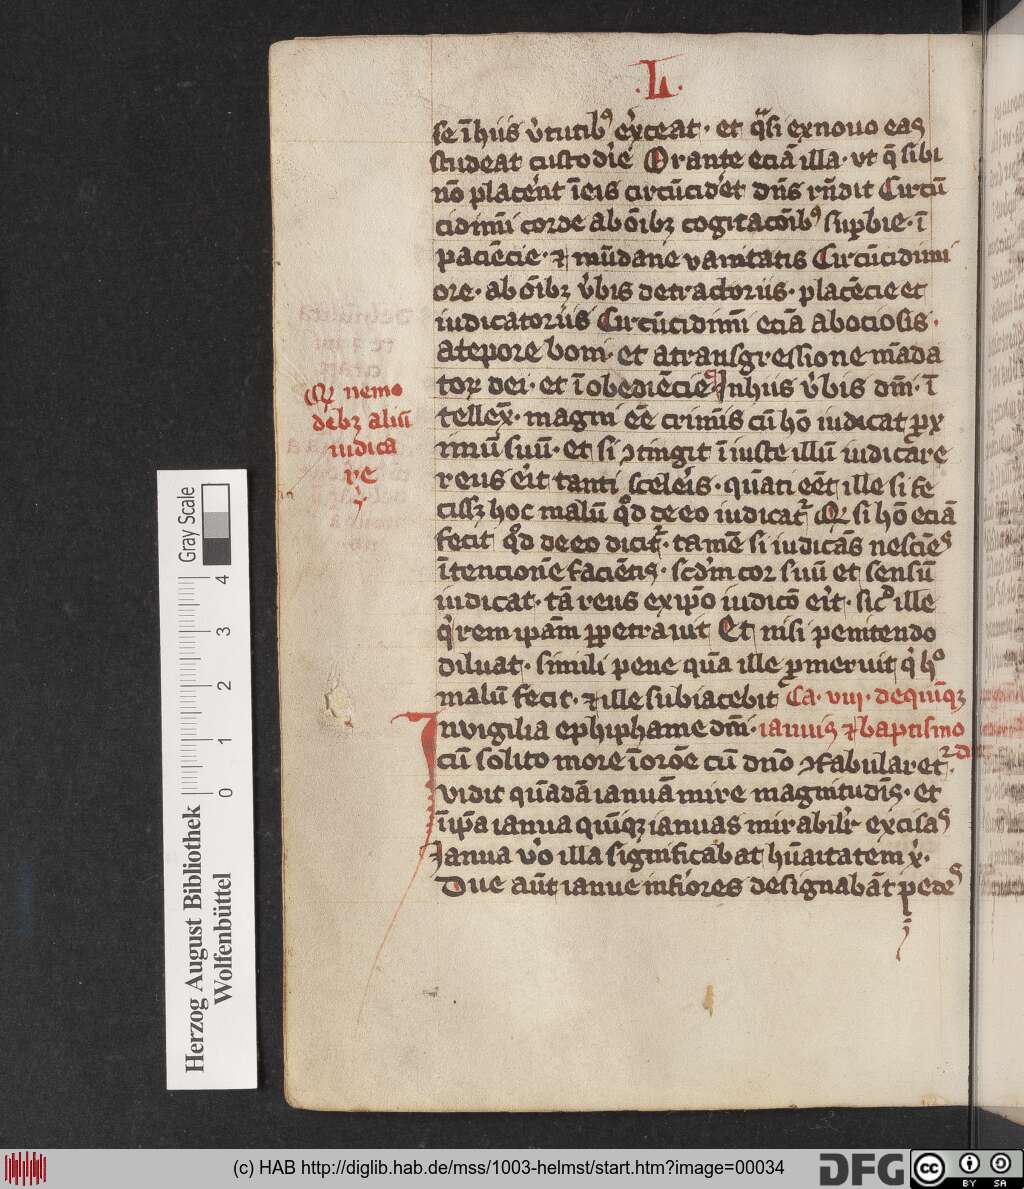 .L.
se ī hiis v̾tutibꝰ ex̾ceat · et qᷓsi ex nouo eas
studeat custodi̾e Orante eciā illa · vt q̄ sibi
nō placer̄nt ī eis circūcid̾et dn̄s rn̄dit Circū
cidimī corde ab oīb3 cogitacōibꝰ sup̱bie · ī
paciēcie · ⁊ mūdane vanitatis Circūcidimi
ore · ab oīb3 v̾bis detractoriis · placēcie et
iudicatoriis Circūcidimī eciā ab ociosis ·
a tēpore boni · et a transgressione māda
toꝝ dei · et ī obediēcie In hiis v̾bis dnī · ī
tellex̄ · magni eē crimīs cū hō iudicat ꝓx
imū suū · et si ꝯtingit ī iuste illū iudicare
reus er̾it tanti sceler̾is · quāti eēt ille si fe
ciss3 hoc malū qd̾ de eo iudicat̾ Qꝛ si hō eciā
fecit qd̾ de eo dicit̾ · tamē si iudicās nesciēs
ītencionē faciētis · scd̾m cor suū et sensū
iudicat · tā reus ex ip̄o iudicō er̾it · sic̾ ille
q̾ rem ipām ꝑpetrauit Et nisi penitendo
diluat · simili pene quā ille ꝓmeruit q̾ hͦ
malū fecit · ⁊ ille subiacebit Ca · viii · de quīq3
In vigilia ephiphanie dnī · ianuis ⁊ baptismo
cū solito more ī orōe cū dnō ꝯfabularet̾ ·
vidit quādā ianuā mire magnitudīs · et
ī ip̄a ianua quīq3 ianuas mirabilr̾ excisas
Ianua v̾o illa significabat hūaitatem x̾ ·
Due aūt ianue inf̾iores designabāt pedes
Qꝛ nemo
deb3 aliū
iudica
re
Herzog August Bibliothek
Wolfenbüttel
0 1 2 3 4
Gray Scale
(c) HAB http://diglib.hab.de/mss/1003-helmst/start.htm?image=00034
DFG
cc BY SA